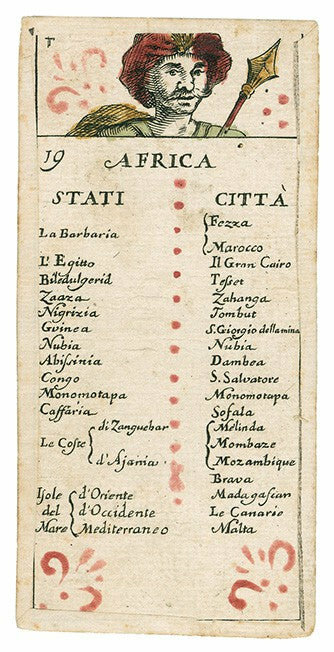 T
19 AFRICA
STATI CITTÀ
Fezza
La Barbaria
Marocco
L'Egitto Il Gran Cairo
Biledulgerid Tesset
Zaaza Zahanga
Nigrizia Tombut
Guinea S. Giorgio della mina
Nubia Nubia
Abissinia Dambea
Congo S. Salvatore
Monomotapa Monomotapa
Caffaria Sofala
di Zanguebar Melinda
Le Coste Mombaze
d'Ajania Mozambique
Brava
Isole d'Oriente Madagascan
del d'Occidente Le Canarie
Mare Mediterraneo Malta